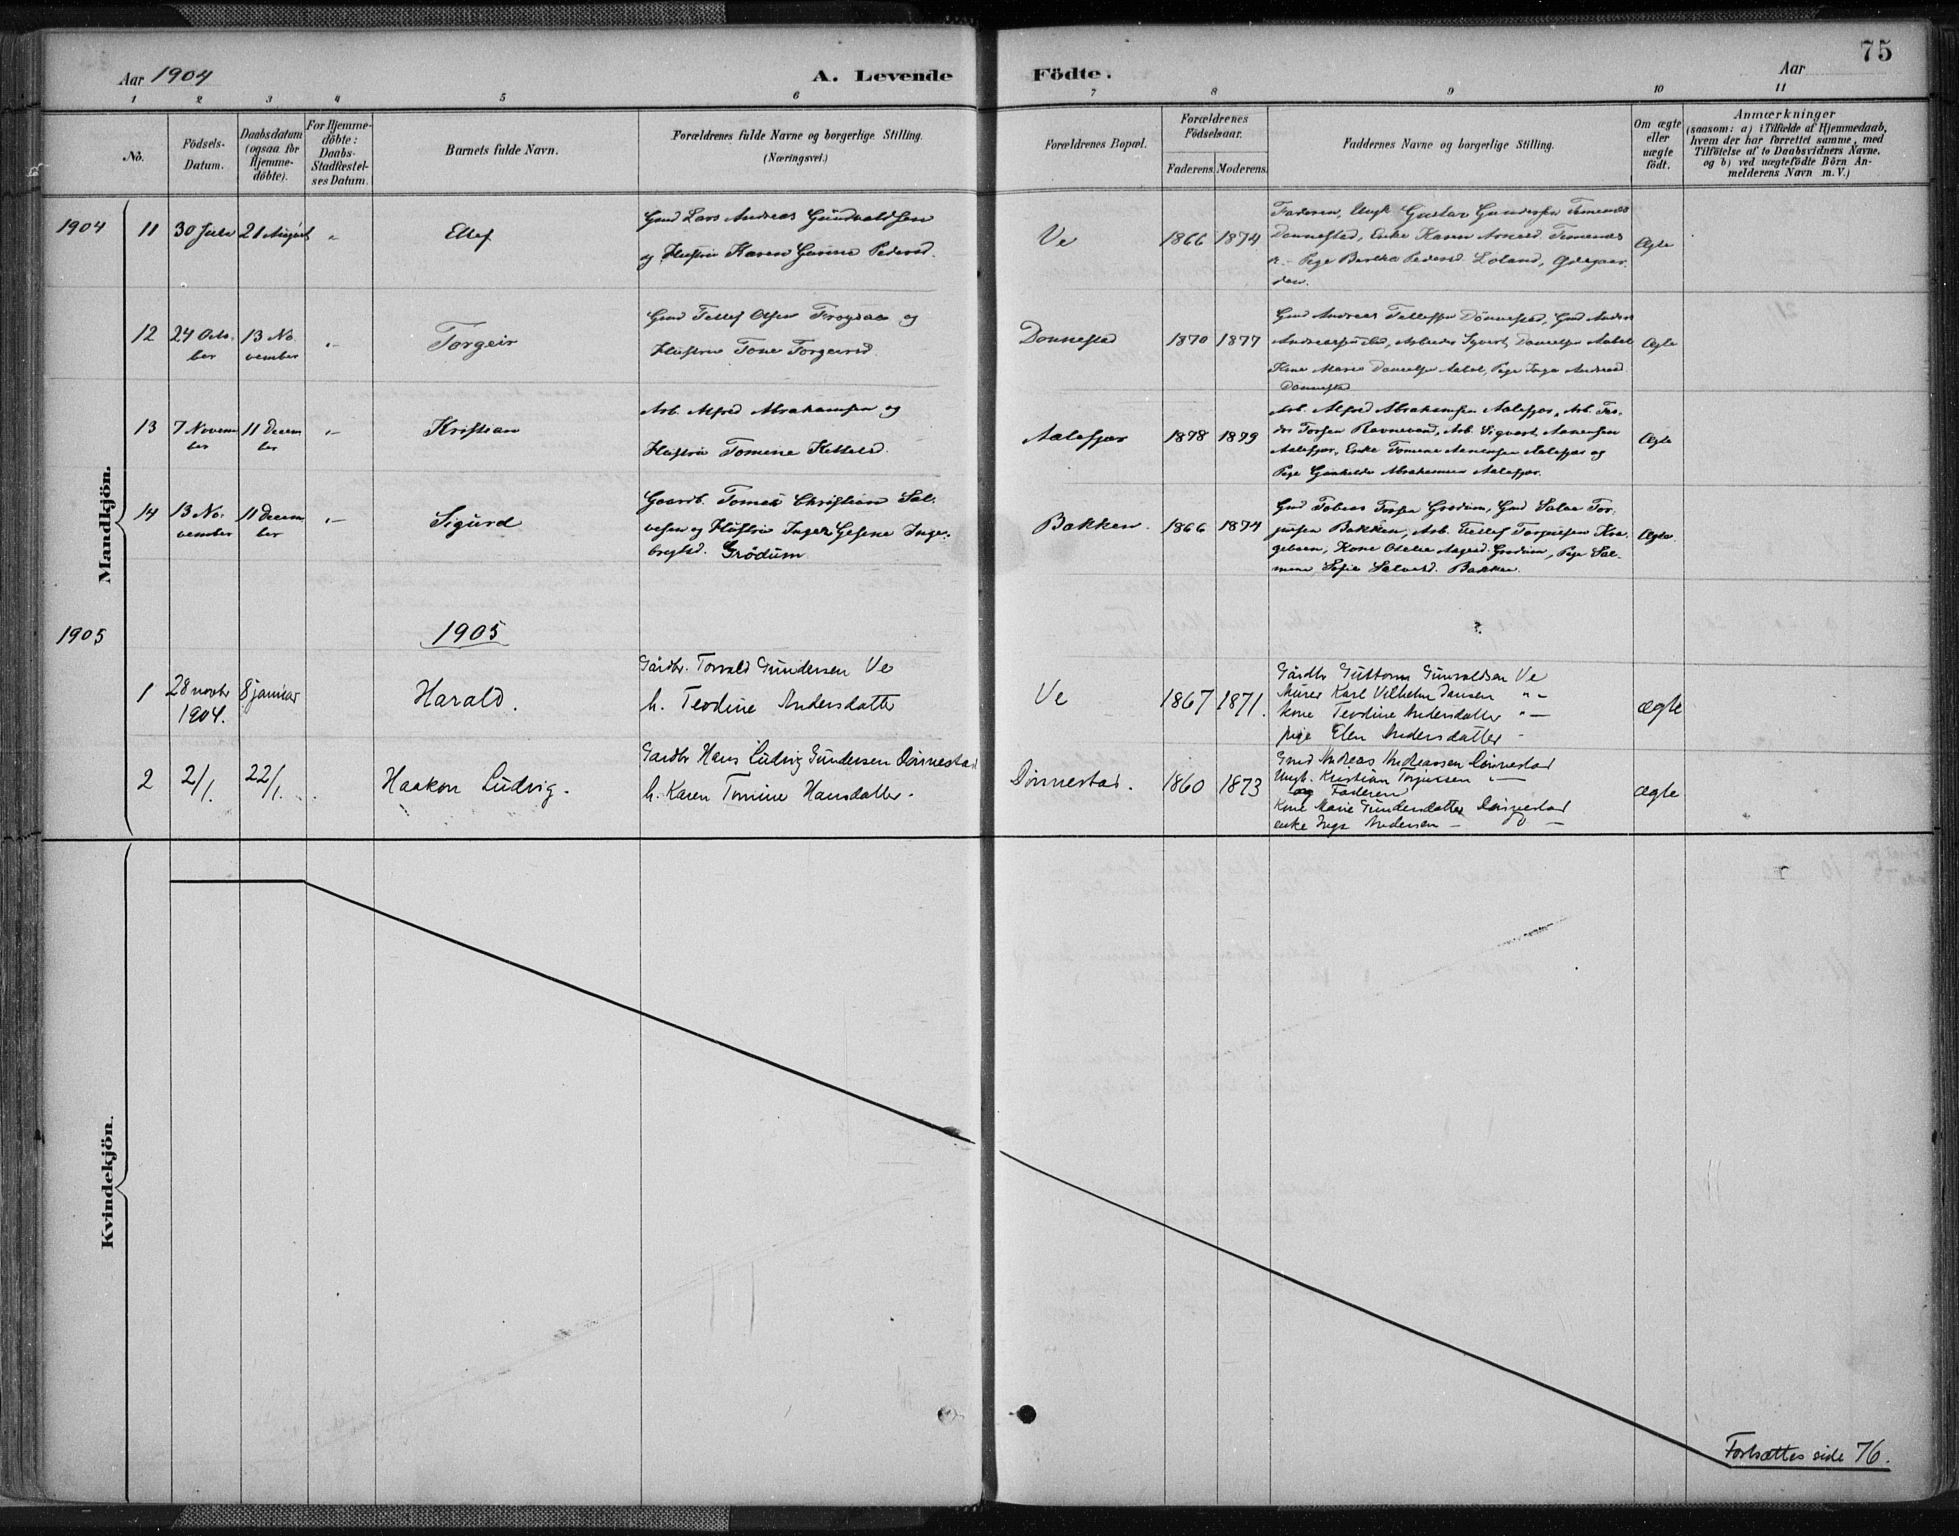 75
Aar 1904
A. Levende Födte.
Aar
1 2 3 4 5 6 7 8 9 10 11
No.
Födsels-Datum.
Daabsdatum (ogsaa for Hjemme-döbte).
For Hjemme-döbte: Daabs-Stadfæstel-ses Datum.
Barnets fulde Navn.
Forældrenes fulde Navne og borgerlige Stilling.
(Næringsvei.)
Forældrenes Bopæl.
Forældrenes Födselsaar.
Faderens. Moderens.
Faddernes Navne og borgerlige Stilling.
Om ægte eller uægte födt.
Anmærkninger
(saasom: a) i Tilfælde af Hjemmedaab,
hvem der har forrettet samme, med
Tilföielse af to Daabsvidners Navne,
og b) ved uægtefödte Börn An-
melderens Navn m. V.)
Mandkjön.
1904
11 30 Juli 21 August "
Ellef
Gmd Lars Andreas Gundvaldsen
og Hustru Karen Gurine Pedersd.
Ve
1866 1874
Faderen, Ungk Gustav Gundersen Temenæs
Donnestad, Enke Karen Temenæs
Pige Bertha Pedersd. Löland, Ødegaar
den.
Ægte
12 24 Octo-
ber
13 No
vember
"
Torgeir
Gmd Tellef Olsen Frøysaa og
Hustru Tone Torgeirsd.
Donnestad
1870 1877
Gmd Andreas Tellefsen Dönnestad, Gmd Anders
Andreas Arbeider Syvert Danielsen Aabel
Kone Maren Danielsen Aabel, Pige Inga Andreasd.
Dönnestad
Ægte
13 7 Novem
ber
11 Decem
ber
"
Kristian
Arb. Alfred Abrahamsen og
Hustru Tomine Kettelsd.
Aalefjær
1878 1879
Arb. Alfred Abrahamsen Aalefjær, Arb.
Torsen Ravnevand, Arb. Sigvart Aanensen
Aalefjær, Enke Tomine Aanensen Aalefjær og
Pige Gunhilde Abrahamsen Aalefjær.
Ægte
14 13 No-
vember
11 Decem
ber
"
Sigurd
Gaardb. Tomas Christian Sal-
vesen og Hustru Inger Gesine Inge-
bregtsd. Grödum
Bakken.
1866 1874
Gmd Tobias Torsen Grødum, Gmd Salve Tor-
jusen Bakken, Arb. Tellef Torjusen Kra
geboen, Kone Otelie Aagesd. Grodum, Pige Sal-
mine Sofie Salvesd. Bakken.
Ægte.
1905
1905
1 28 novbr
1904.
8 januar
Harald.
Gårdbr. Torvald Gundersen Ve
h. Teodine Andersdatter
Ve
1867 1871.
Gårdbr Guttorm Gunvaldsen Ve
Murer Karl Vilhelm Jansen " -
kone Teodine Andersdatter " -
pige Elen Andersdatter -
ægte
2 2/1. 22/1.
Haakon Ludvig.
Gardbr Hans Ludvig Gundersen Dönnestad
h. Karen Tomine Hansdatter.
Dönnestad.
1860 1873
Gmd Andreas Andreassen Dönnestad
Ungk. Kristian Torjussen " -
og Faderen
Kone Marie Gundersdatter Dönnestad
enke Inga Andersen - " -
ægte
Kvindekjön.
Fortsættes side 76.